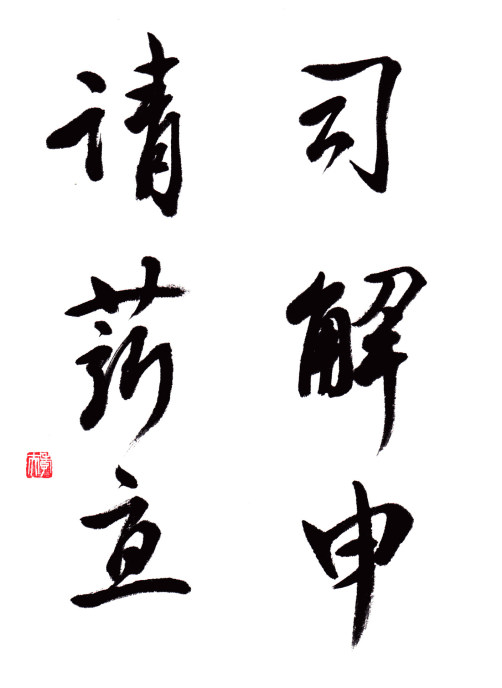 司解申
請薪直